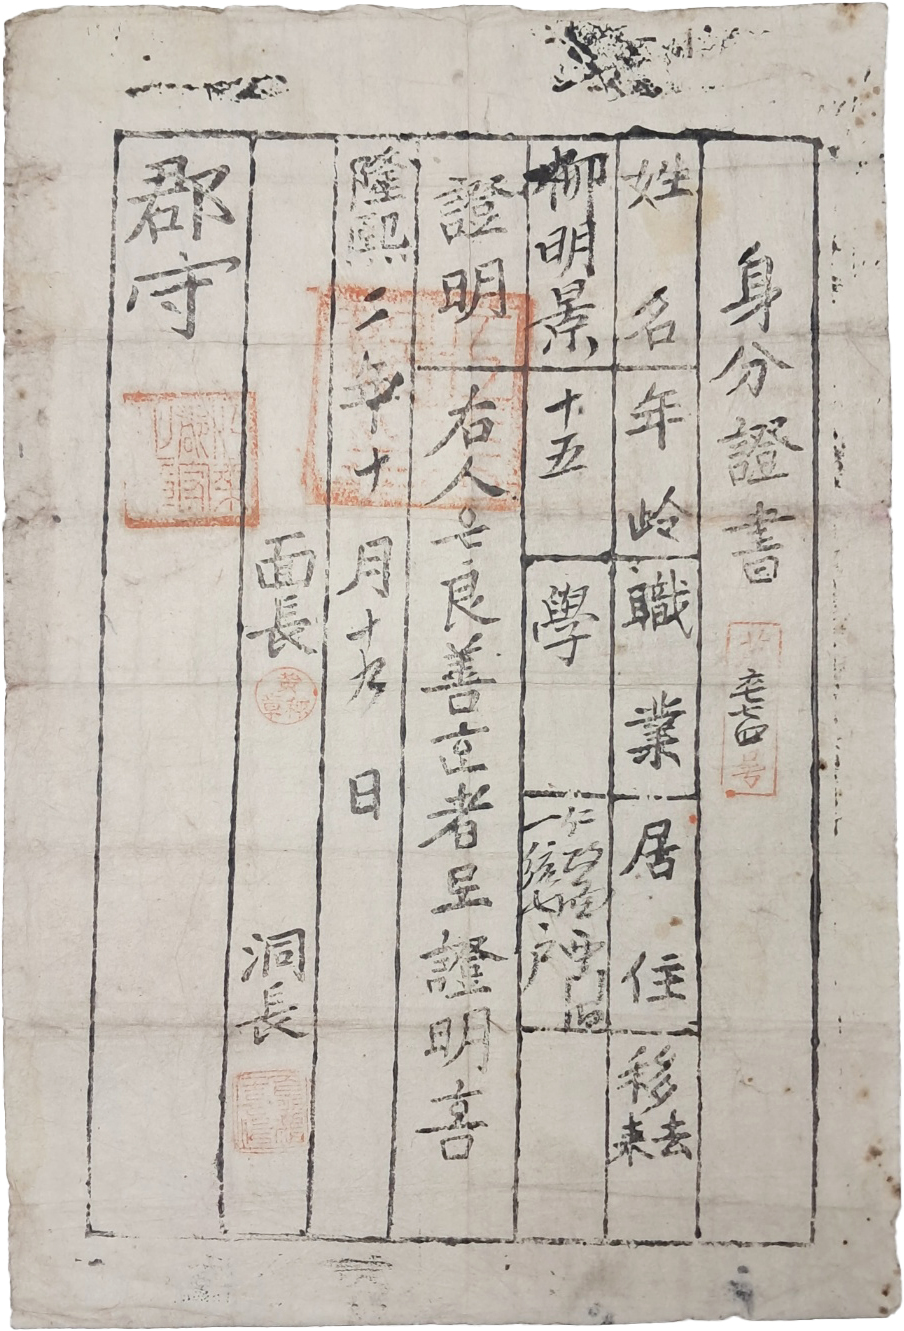 身分證書 号
姓名 年岭 職業 居住 移去来
柳明景 十五 學
證明 右人은良善ᄒᆞᆫ者로證明홈
隆熙二年十月十九日
面長 洞長
郡守